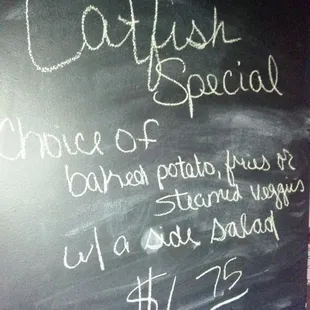 Catfish
Special
Choice of
baked potato, fries or
steamed veggies
w/ a side salad
$
75